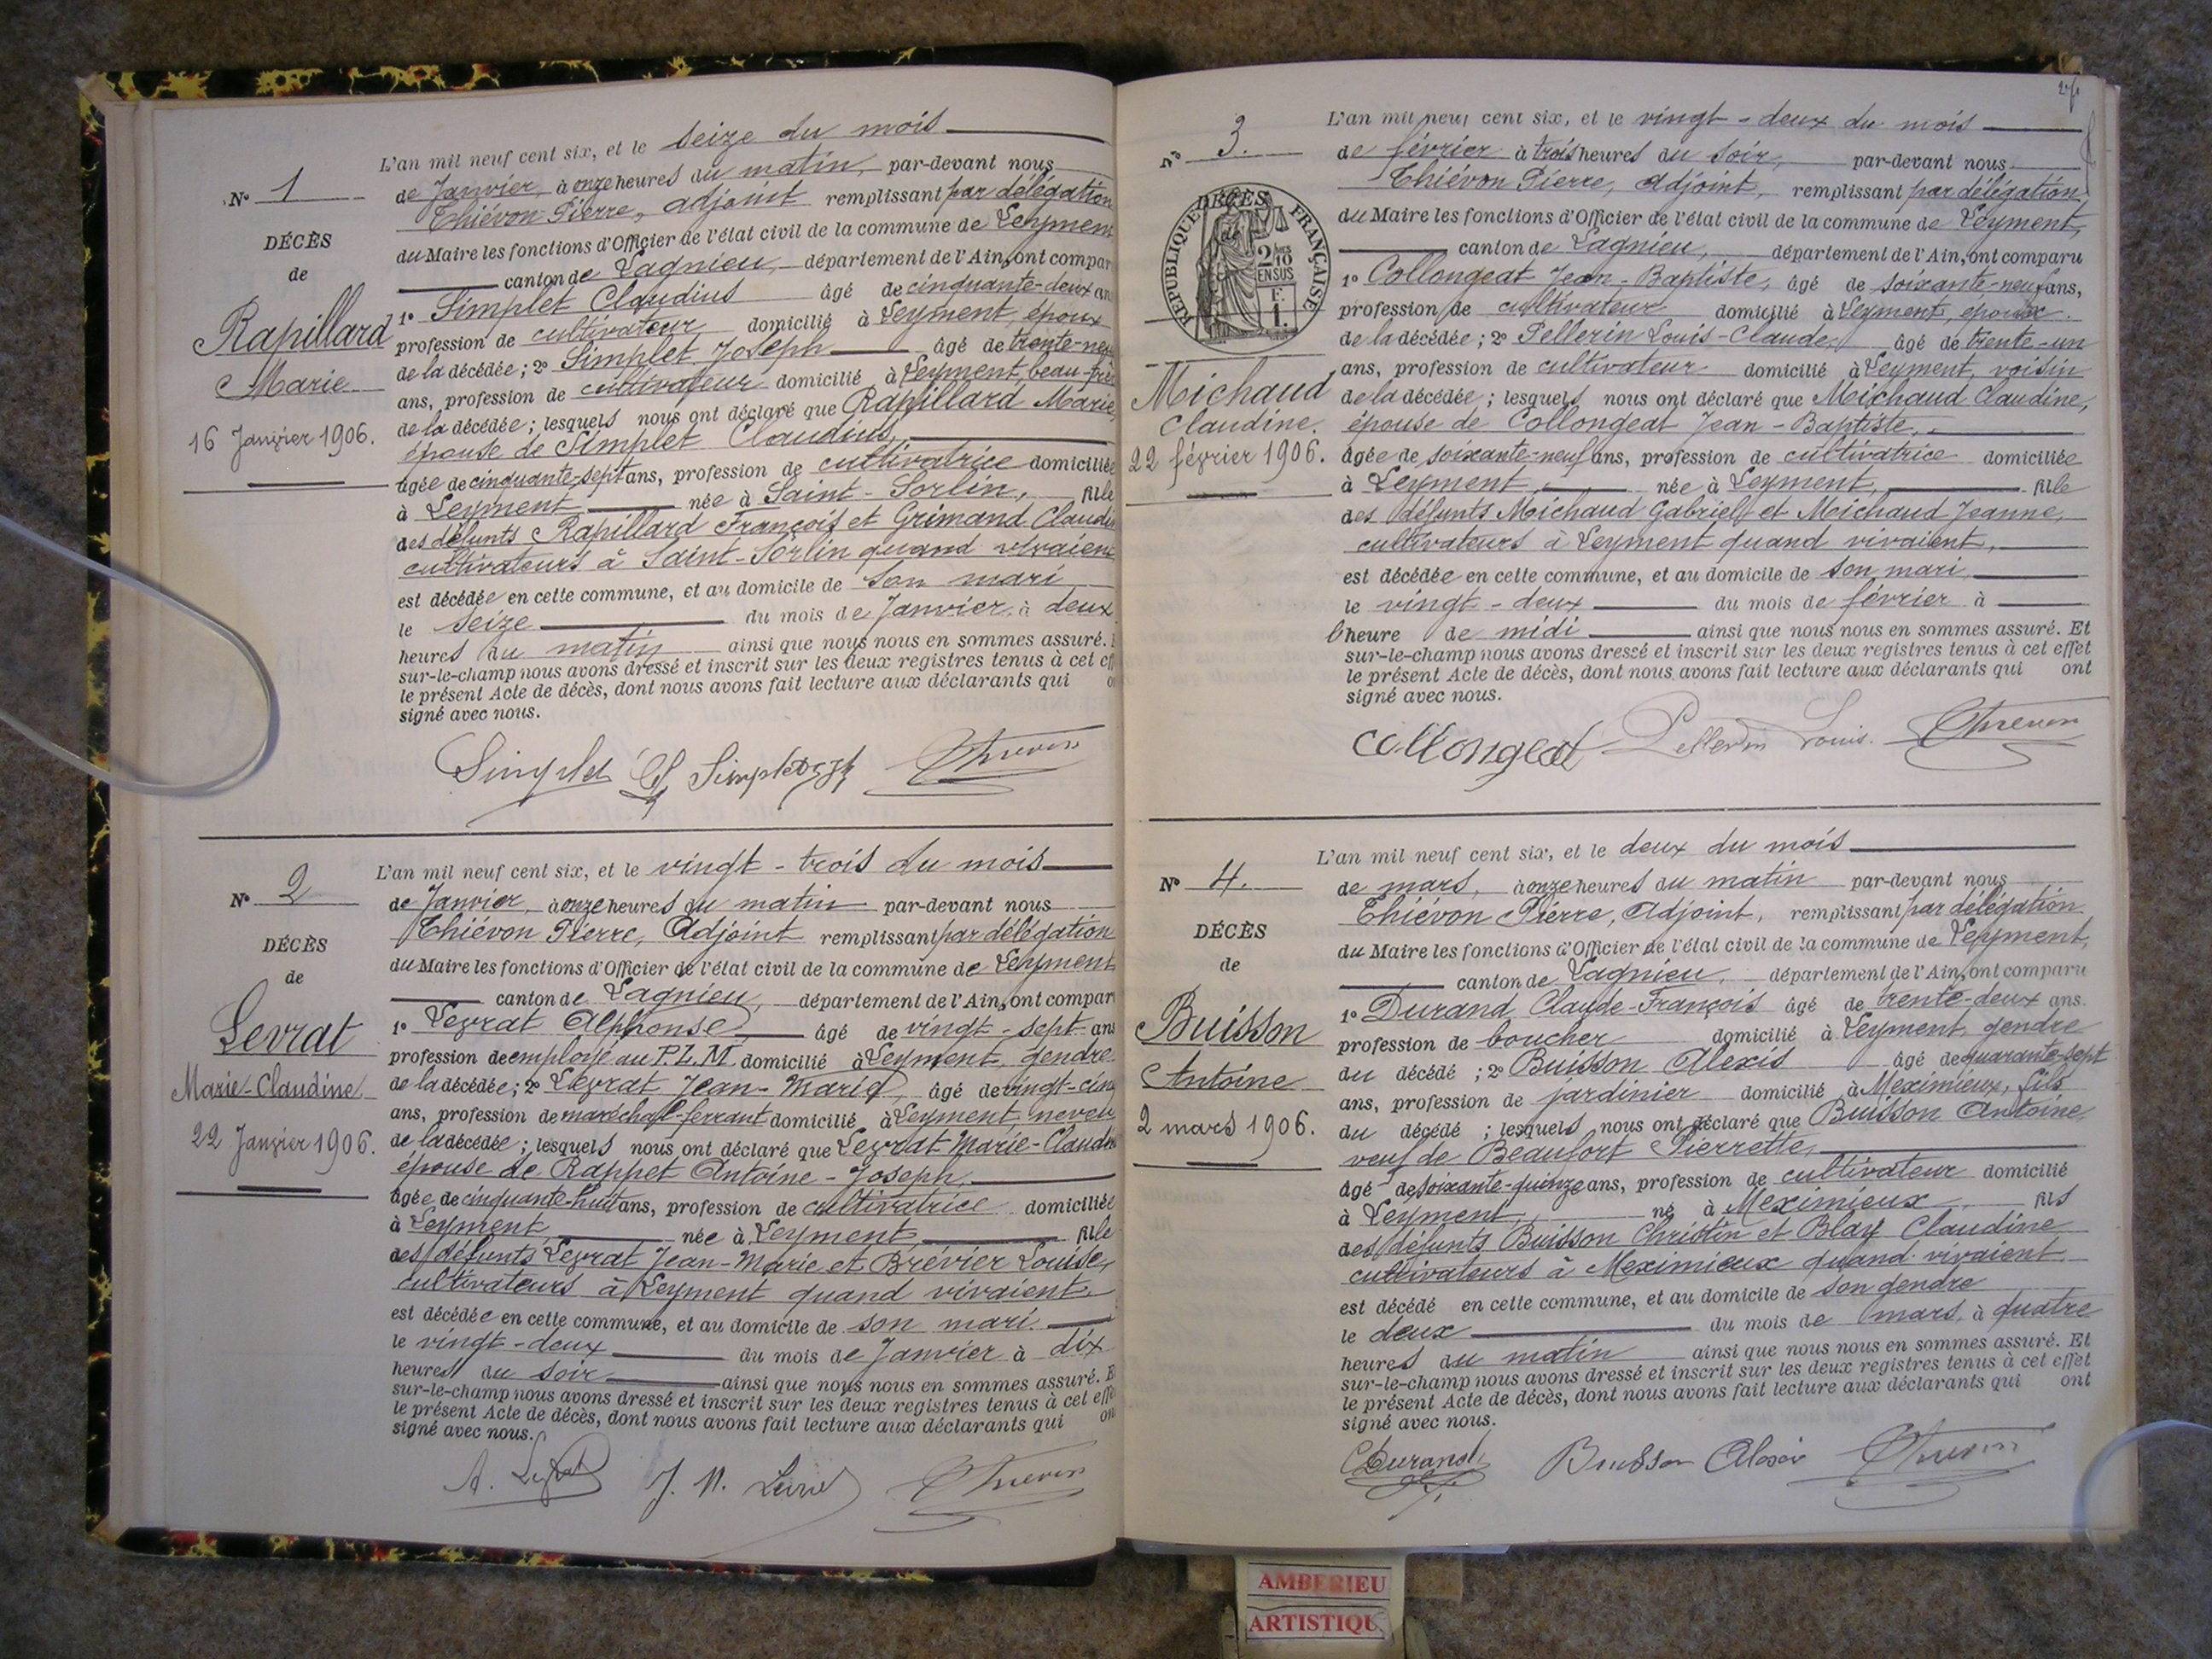 N° 1
DÉCÈS
de
Rapillard
Marie
16 Janvier 1906.
L'an mil neuf cent six, et le seize du mois
de Janvier, à onze heures du matin, par-devant nous
Thiévon Pierre, adjoint remplissant par délégation
du Maire les fonctions d'Officier de l'état civil de la commune de Leyment
canton de Lagnieu, département de l'Ain, ont compar
1° Simplet Claudius âgé de cinquante-deux an
profession de cultivateur domicilié à Leyment, époux
de la décédée; 2° Simplet Joseph âgé de trente-neu
ans, profession de cultivateur domicilié à Leyment, beau-frè
de la décédée; lesquels nous ont déclaré que Rapillard Marie,
épouse de Simplet Claudius,
âgée de cinquante-sept ans, profession de cultivatrice domiciliée
à Leyment, née à Saint-Sorlin, fille
des défunts Rapillard François et Grimand Claudi
cultivateurs à Saint-Sorlin quand vivaient
est décédée en cette commune, et au domicile de son mari
le seize du mois de Janvier, à deux
heures du matin ainsi que nous nous en sommes assuré.
sur-le-champ nous avons dressé et inscrit sur les deux registres tenus à cet eff
le présent Acte de décès, dont nous avons fait lecture aux déclarants qui o
signé avec nous.
Simplet Cl Simplet Jph Thievon
N° 2
DÉCÈS
de
Levrat
Marie-Claudine
22 Janvier 1906.
L'an mil neuf cent six, et le vingt-trois du mois
de Janvier, à onze heures du matin par-devant nous
Thiévon Pierre, Adjoint remplissant par délégation
du Maire les fonctions d'Officier de l'état civil de la commune de Leyment
canton de Lagnieu, département de l'Ain, ont compar
1° Levrat Alphonse, âgé de vingt-sept ans
profession de employé au P.L.M. domicilié à Leyment, gendre
de la décédée; 2° Levrat Jean-Marie, âgé de vingt-cinq
ans, profession de maréchal-ferrant domicilié à Leyment, neveu
de la décédée; lesquels nous ont déclaré que Levrat Marie-Claudin
épouse de Rappet Antoine-Joseph,
âgée de cinquante-huit ans, profession de cultivatrice domiciliée
à Leyment, née à Leyment, fille
des défunts Levrat Jean-Marie et Brévier Louise,
cultivateurs à Leyment quand vivaient,
est décédée en cette commune, et au domicile de son mari.
le vingt-deux du mois de Janvier à dix
heures du soir ainsi que nous nous en sommes assuré. E
sur-le-champ nous avons dressé et inscrit sur les deux registres tenus à cet effe
le présent Acte de décès, dont nous avons fait lecture aux déclarants qui on
signé avec nous.
A. Levrat J. M. Levrat Thievon
N° 3.
RÉPUBLIQUE FRANÇAISE
2/10 EN SUS
F.
1.
DÉCÈS
de
Michaud
Claudine.
22 février 1906.
L'an mil neuf cent six, et le vingt-deux du mois
de février à trois heures du soir, par-devant nous
Thiévon Pierre, adjoint, remplissant par délégation
du Maire les fonctions d'Officier de l'état civil de la commune de Leyment,
canton de Lagnieu, département de l'Ain, ont comparu
1° Collongeat Jean-Baptiste, âgé de soixante-neuf ans,
profession de cultivateur domicilié à Leyment, époux
de la décédée; 2° Pellerin Louis-Claude, âgé de trente-un
ans, profession de cultivateur domicilié à Leyment, voisin
de la décédée; lesquels nous ont déclaré que Michaud Claudine,
épouse de Collongeat Jean-Baptiste,
âgée de soixante-neuf ans, profession de cultivatrice domiciliée
à Leyment, née à Leyment, fille
des défunts Michaud Gabriel et Michaud Jeanne,
cultivateurs à Leyment quand vivaient,
est décédée en cette commune, et au domicile de son mari,
le vingt-deux du mois de février à
l'heure de midi ainsi que nous nous en sommes assuré. Et
sur-le-champ nous avons dressé et inscrit sur les deux registres tenus à cet effet
le présent Acte de décès, dont nous avons fait lecture aux déclarants qui ont
signé avec nous.
Collongeat Pellerin Louis. Thievon
N° 4.
DÉCÈS
de
Buisson
Antoine
2 mars 1906.
L'an mil neuf cent six, et le deux du mois
de mars, à onze heures du matin par-devant nous
Thiévon Pierre, Adjoint, remplissant par délégation
du Maire les fonctions d'Officier de l'état civil de la commune de Leyment,
canton de Lagnieu, département de l'Ain, ont comparu
1° Durand Claude-François âgé de trente-deux ans.
profession de boucher domicilié à Leyment, gendre
du décédé; 2° Buisson Alexis âgé de quarante-sept
ans, profession de jardinier domicilié à Meximieux, fils
du décédé; lesquels nous ont déclaré que Buisson Antoine
veuf de Beaufort Pierrette,
âgé de soixante-quinze ans, profession de cultivateur domicilié
à Leyment, né à Meximieux, fils
des défunts Buisson Christin et Blay Claudine
cultivateurs à Meximieux quand vivaient
est décédé en cette commune, et au domicile de son gendre
le deux du mois de mars, à quatre
heures du matin ainsi que nous nous en sommes assuré. Et
sur-le-champ nous avons dressé et inscrit sur les deux registres tenus à cet effet
le présent Acte de décès, dont nous avons fait lecture aux déclarants qui ont
signé avec nous.
Durand Buisson Alexis Thievon
AMBERIEU
ARTISTIQU